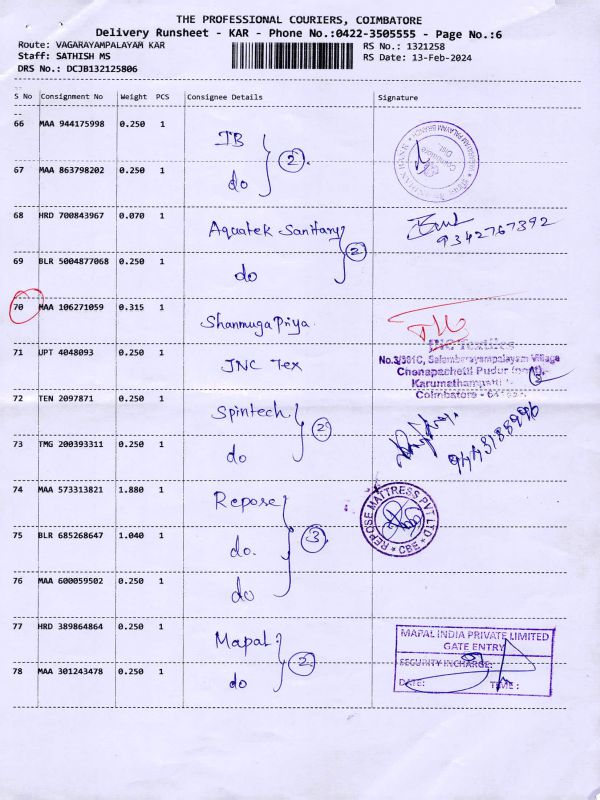 THE PROFESSIONAL COURIERS, COIMBATORE
Delivery Runsheet - KAR - Phone No.:0422-3505555 - Page No.:6
Route: VAGARAYAMPALAYAM KAR RS No.: 1321258
Staff: SATHISH MS RS Date: 13-Feb-2024
DRS No.: DCJB132125806
S No Consignment No Weight PCS Consignee Details Signature
66 MAA 944175998 0.250 1 IB
2
67 MAA 863798202 0.250 1 do
68 HRD 700843967 0.070 1 Aquatek Sanitary
9342767392
2
69 BLR 5004877068 0.250 1 do
70 MAA 106271059 0.315 1 Shanmuga Priya.
JNC Textiles
71 UPT 4048093 0.250 1 JNC Tex
No.3/381C, Selambarayampalayam Village
Chenapachetti Pudur
Karumathampatti
Coimbatore - 
72 TEN 2097871 0.250 1 Spintech
2
73 TMG 200393311 0.250 1 do
74 MAA 573313821 1.880 1 Repose
REPOSE MATTRESS PVT LTD
* CBE *
3
75 BLR 685268647 1.040 1 do.
76 MAA 600059502 0.250 1 do
77 HRD 389864864 0.250 1 Mapal
MAPAL INDIA PRIVATE LIMITED
GATE ENTRY
SECURITY INCHARGE:
2
78 MAA 301243478 0.250 1 do
DATE: TIME :